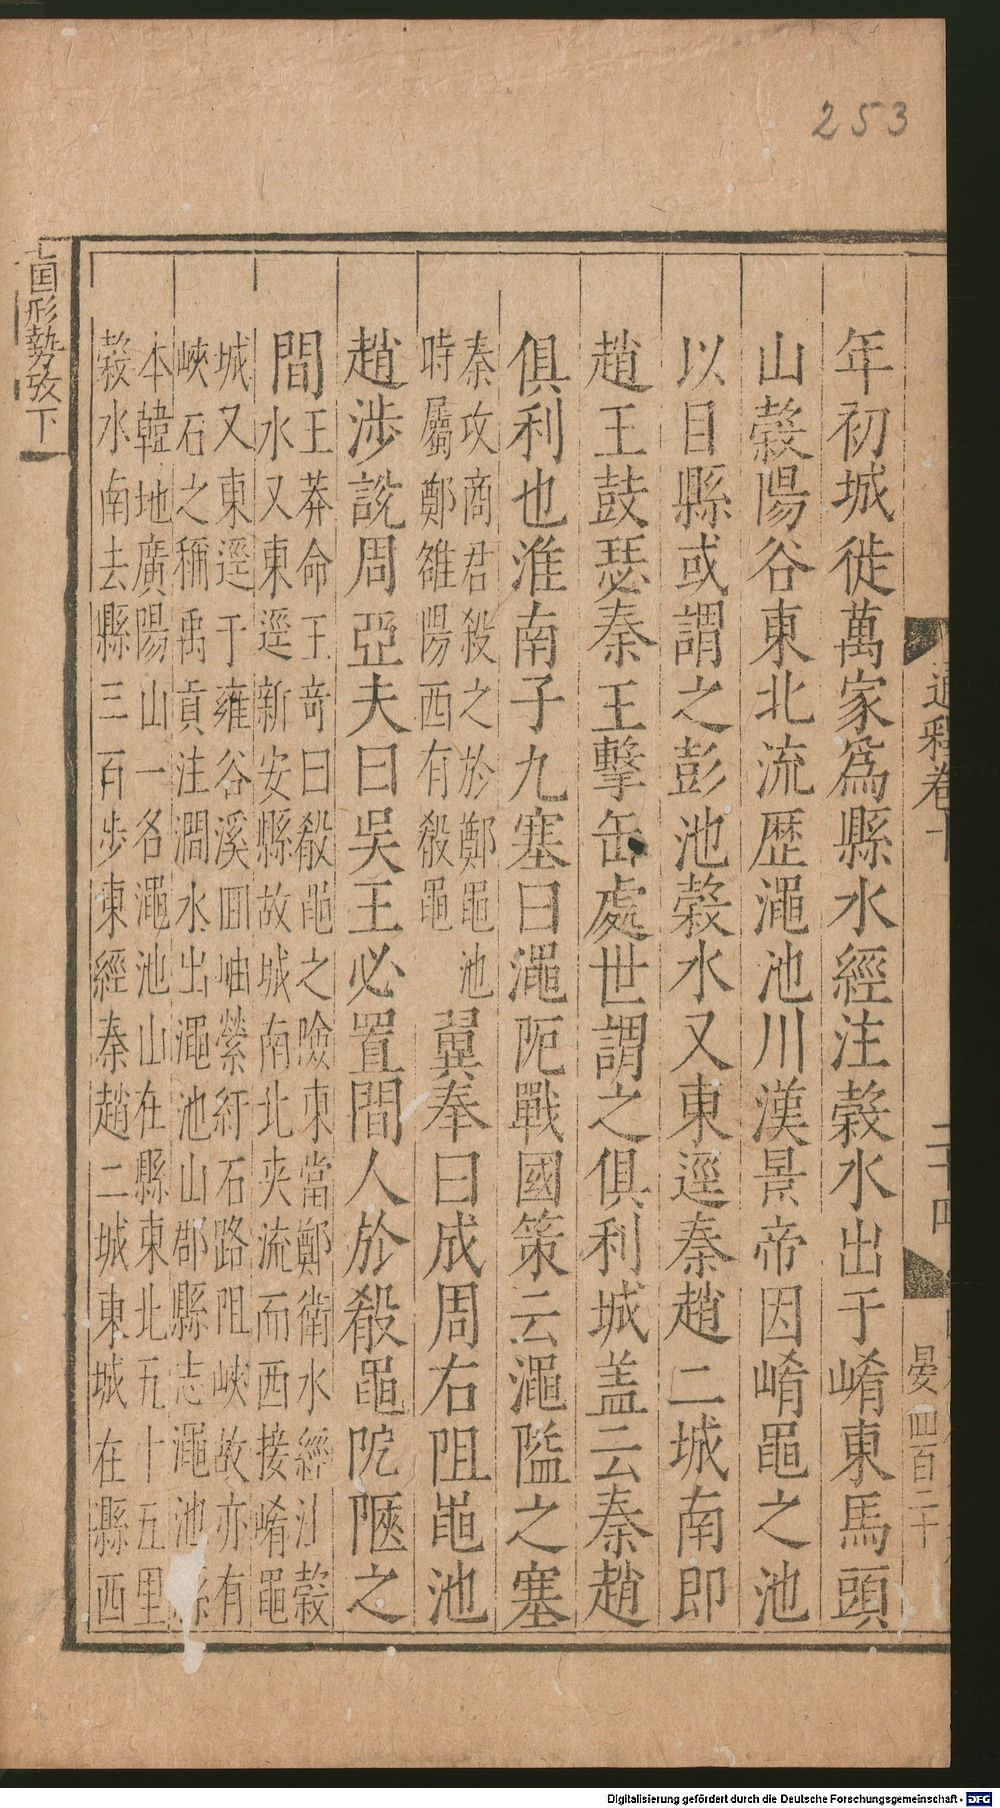 253
通釋卷十
二十四
晏 四百二十
年初城徙萬家爲縣水經注穀水出于崤東馬頭
山穀陽谷東北流歴澠池川漢景帝因崤黽之池
以目縣或謂之彭池穀水又東逕秦趙二城南即
趙王鼓瑟秦王擊缶處世謂之俱利城盖云秦趙
俱利也淮南子九塞曰澠阨戰國策云澠隘之塞
秦攻商君殺之於鄭黽池
時屬鄭雒陽西有殽黽
翼奉曰成周右阻黽池
趙涉說周亞夫曰吳王必置間人於殽黽阸陿之
間
王莽命王竒曰殽黽之險東當鄭衛水經注穀
水又東逕新安縣故城南北夾流而西接崤黽
城又東逕于雍谷溪囬岫縈紆石路阻峽故亦有
峽石之稱禹貢注澗水出澠池山郡縣志澠池縣
本韓地廣陽山一名澠池山在縣東北五十五里
穀水南去縣三百步東經秦趙二城東城在縣西
七囯形勢攷下
Digitalisierung gefördert durch die Deutsche Forschungsgemeinschaft - DFG